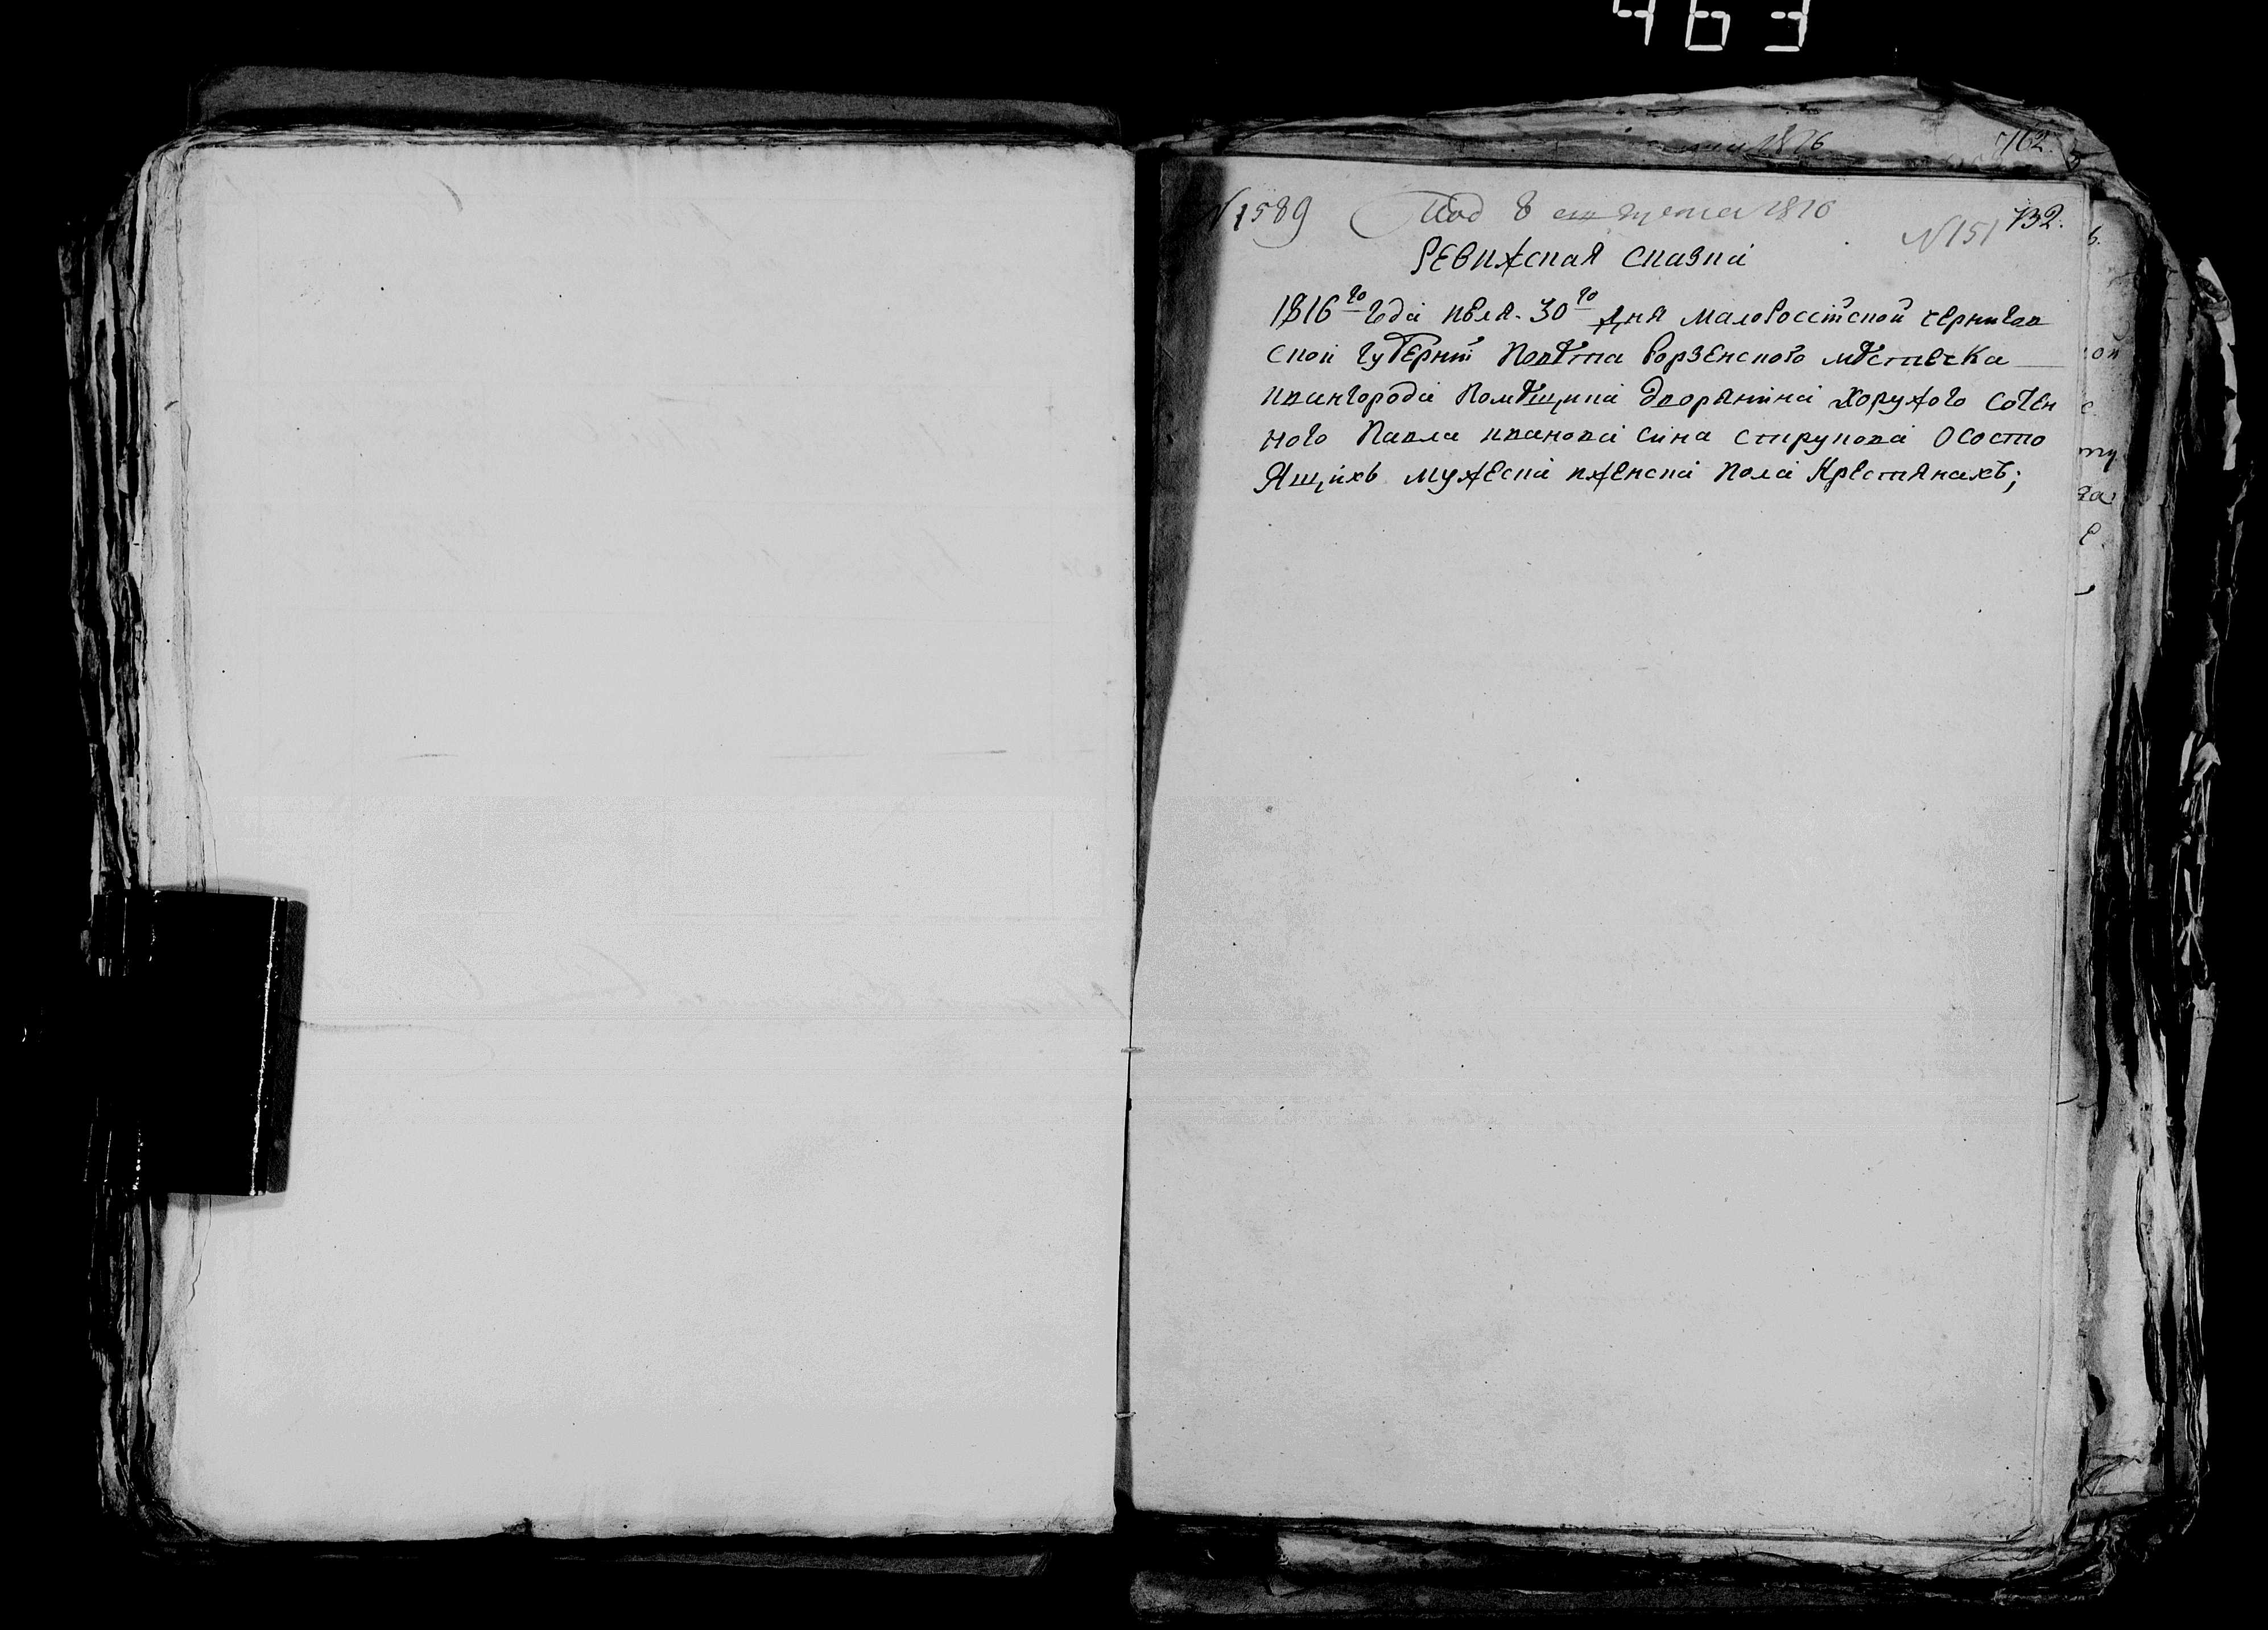 463
1816
762.
N 1589 Под 8 августа 1816
N 151 732.
Ревижская сказка
1816го года июля 30го дня малоросстйской чернигов
ской губернїи повѣта борзенского мѣстечка
ивангорода помѣщика дворянина хоружого сотен
ного павла иванова сина струкова о состо
ящихъ мужеска иженска пола крестянахъ;